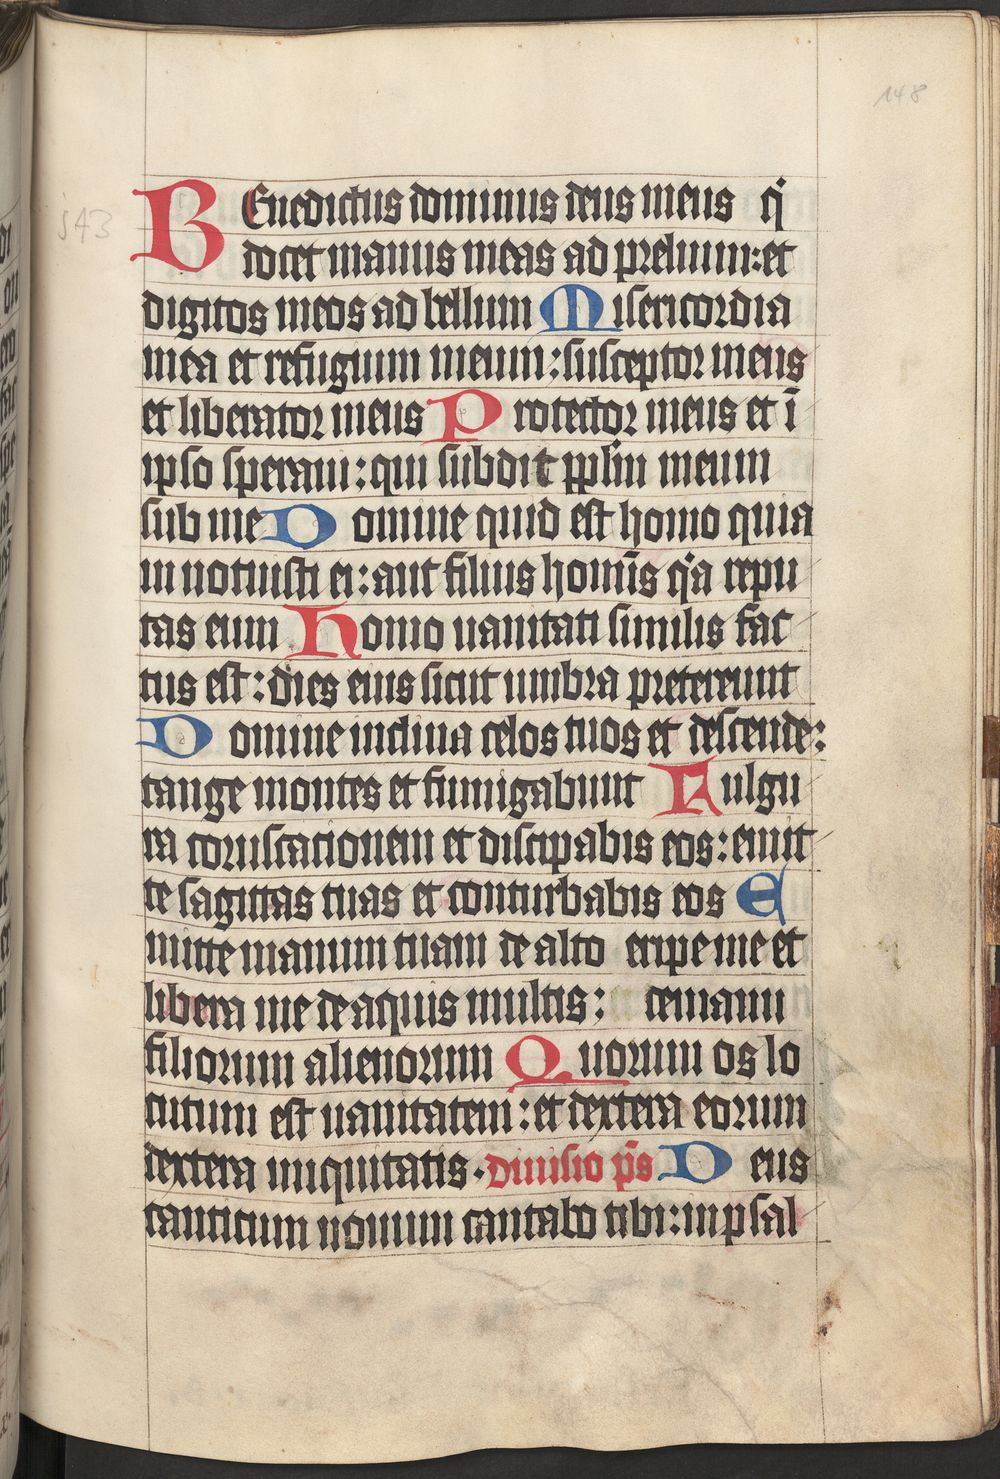 148
143
BEnedictus dominus deus meus q̇
docet manus meas ad prelium: et
digitos meos ad bellum Misericordia
mea et refugium meum: susceptor meus
et liberator meus Protector meus et ī
ipso speraui: qui subdit ppl̄m meum
sub me Domine quid est homo quia
innotuisti ei: aut filius homīs q̇a repu
tas eum Homo uanitati similis fac
tus est: dies eius sicut umbra pretereunt
Domine inclina celos tuos et descende:
tange montes et fumigabunt Fulgu
ra coruscationem et discipabis eos: emit
te sagittas tuas et conturbabis eos E
mitte manum tuam de alto eripe me et
libera me de aquis multis: de manu
filiorum alienorum Quorum os lo
cutum est uanitatem: et dextera eorum
dextera iniquitatis. Diuisio p̄s Deus
canticum nouum cantabo tibi: in psal